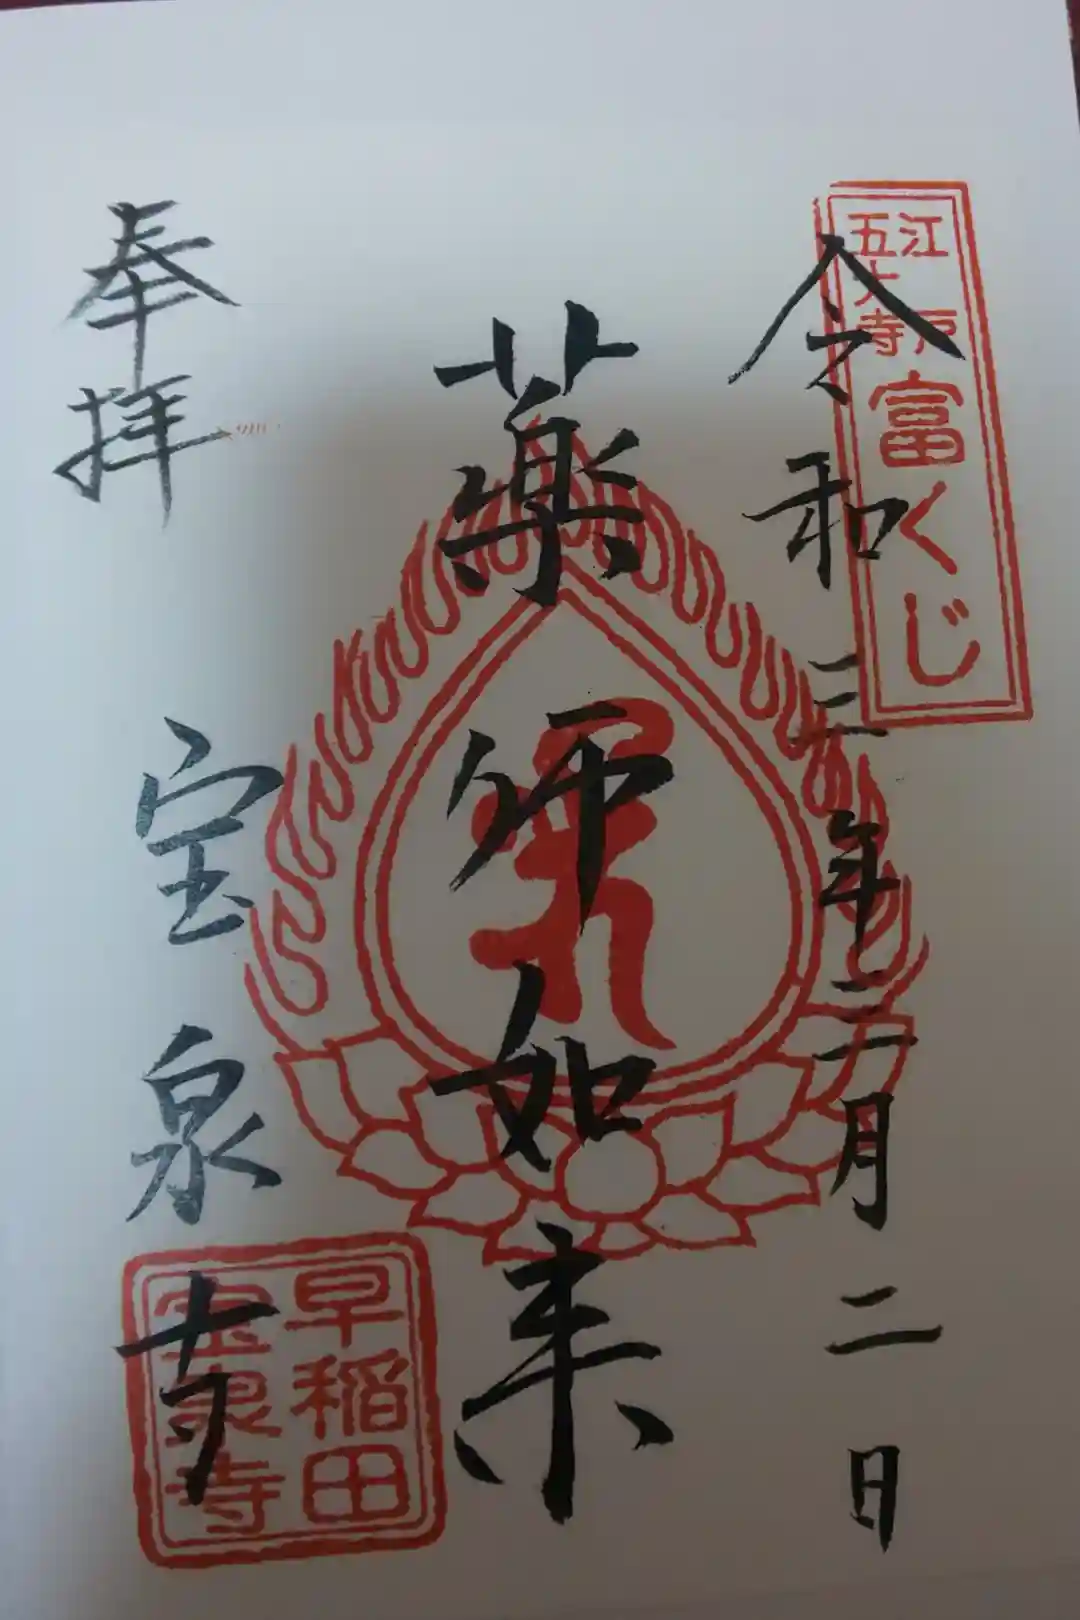 江戸
五大寺
富くじ
令和三年三月二日
薬师如来
奉拝
宝泉寺
早稲田
宝泉寺